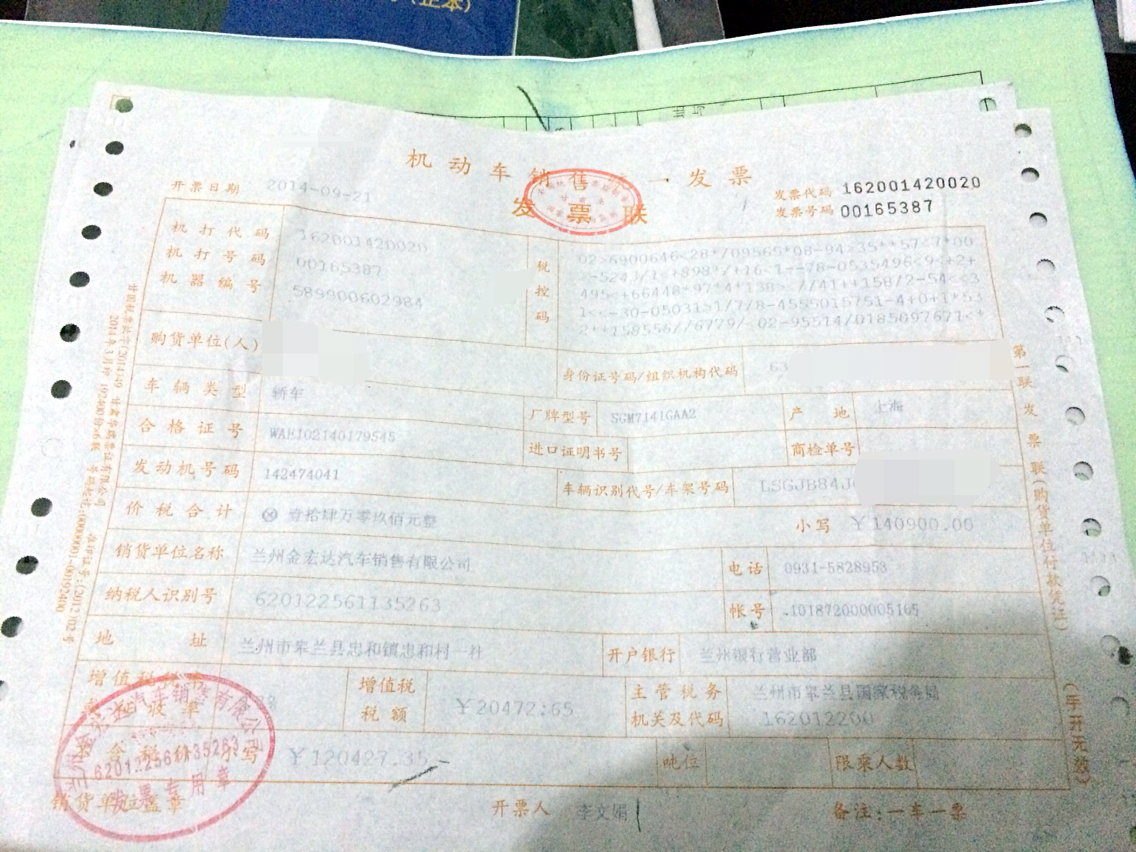 (正本)
机动车销售统一发票
发票联
开票日期 2014-09-21
发票代码 162001420020
发票号码 00165387
机打代码 162001420020
机打号码 00165387
机器编号 589900602984
税控码
购货单位(人)
身份证号码/组织机构代码 63
车辆类型 轿车 厂牌型号 SGM7141GAA2 产地 上海
合格证号 WAB102140179545 进口证明书号 商检单号
发动机号码 142474041 车辆识别代号/车架号码 LSGJB84J
价税合计 ⊗ 壹拾肆万零玖佰元整 小写 ￥140900.00
销货单位名称 兰州金宏达汽车销售有限公司 电话 0931-5828953
纳税人识别号 620122561135263 帐号 101872000005165
地址 兰州市皋兰县忠和镇忠和村一社 开户银行 兰州银行营业部
增值税 税额 ￥20472.65 主管税务机关及代码 兰州市皋兰县国家税务局 162012200
￥120427.35 吨位 限乘人数
销货单位盖章 开票人 李文娟 备注:一车一票
第一联 发票联(购货单位付款凭证)
(手开无效)
兰州金宏达汽车销售有限公司
620122561135263
发票专用章